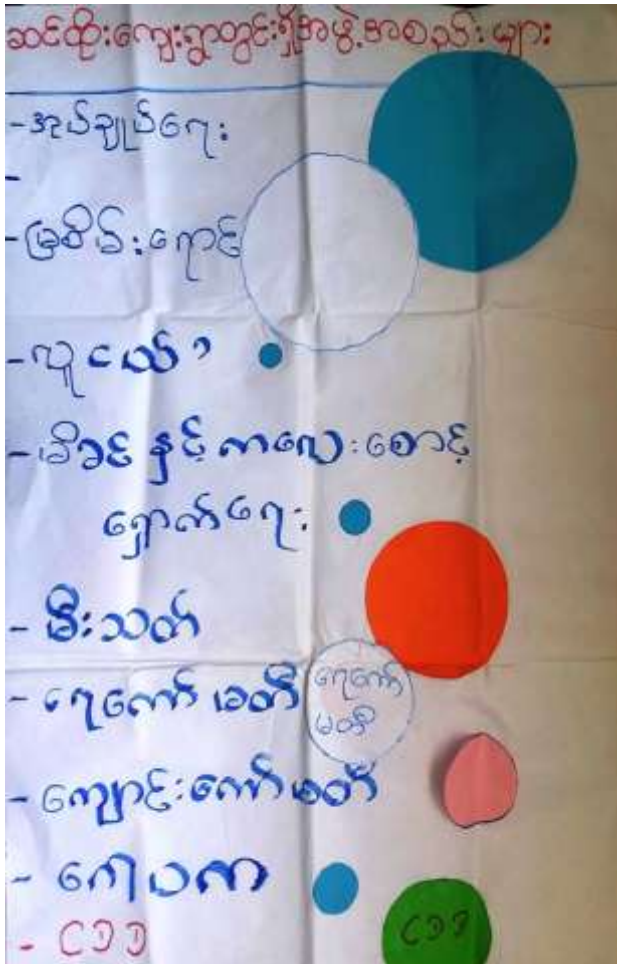 ဆင်ထိုးကျေးရွာတွင်းရှိအဖွဲ့အစည်းများ
-အုပ်ချုပ်ရေး
-
-မြစိမ်းရောင်
-လူငယ်
-မိခင် နှင့် ကလေးစောင့်
ရှောက်ရေး
- မီးသတ်
- ရေကော်မတီ
ရေကော်
မတီ
- ကျောင်းကော်မတီ
- ဂေါပက
- CDD
CDD